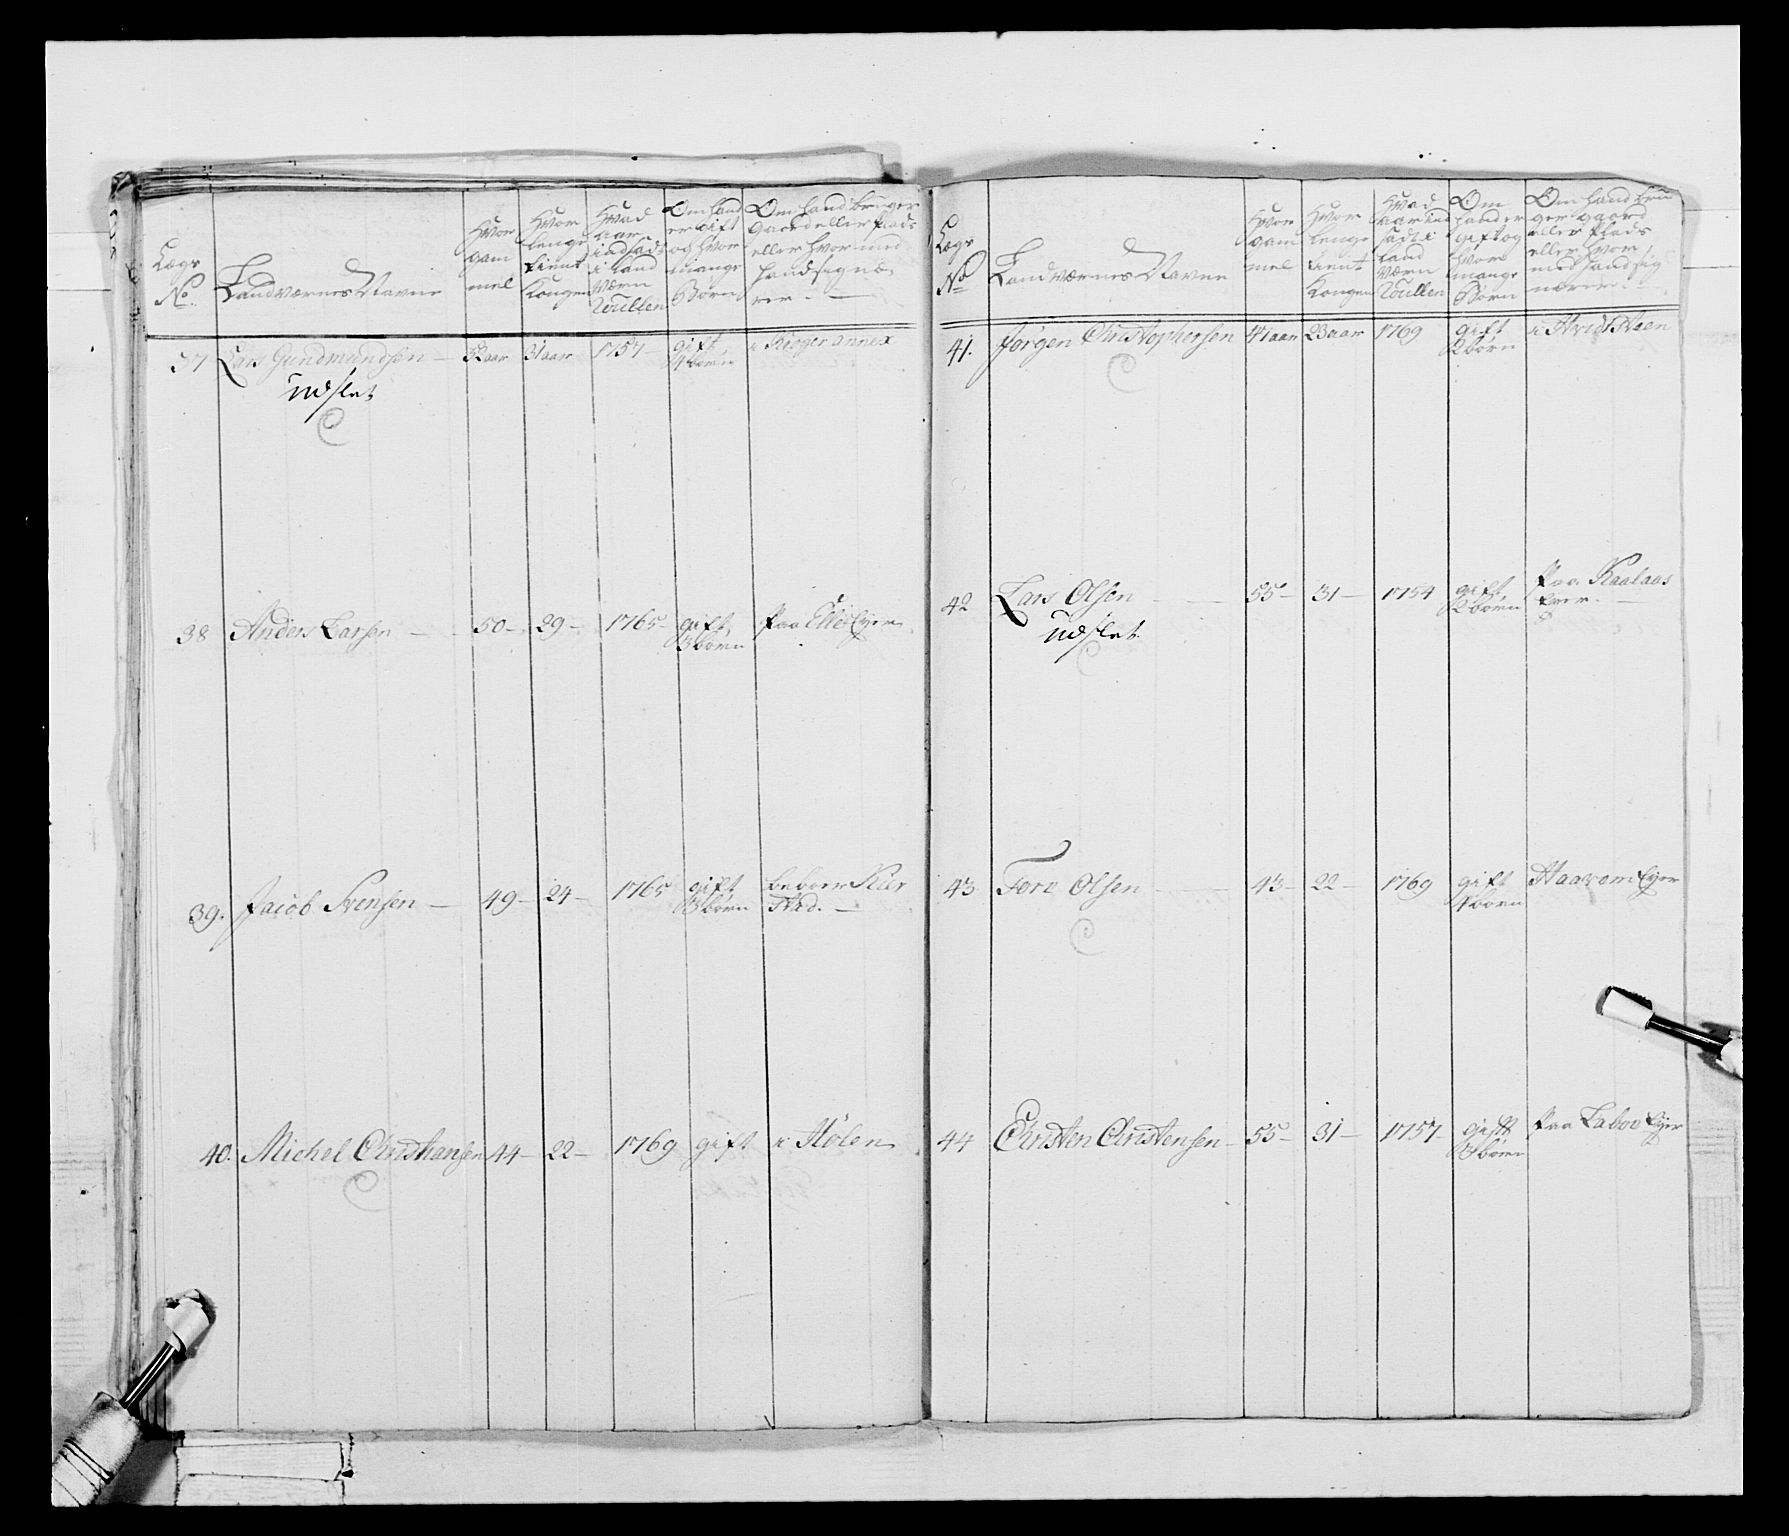 Lægs No. | Landværnes Navne | Hvor gammel | Hvor lenge tient Kongen | Hvad aar indsadt i Land værn Roullen | Om hand er gift og hvor mange Börn | Om hand bruger gaard eller Plads eller hvor med hand sig nærer
37 | Lars Gundmundsen | 52 aar | 31 aar | 1757 | gift 4 börn | i Kroger annex
udslet
38 | Anders Larsen | 50 | 29 | 1765 | gift 3 börn | Paa Eyer
39. | Jacob Svensen | 49 | 24 | 1765 | gift 3 börn | beboer
40. | Michel Christiansen | 44 | 22 | 1769 | gift | i Hölen
Lægs No | Landværnes Navne | Hvor gammel | Hvor lenge tient Kongen | Hvad aar ind sadt i Land værn Roullen | Om hand er gift og hvor mange Börn | Om hand bruger gaard eller Plads eller hvor med hand sig nærer
41. | Jørgen Christophersen | 47 aar | 23 aar | 1769 | gift 2 börn | i Hvidsteen
42 | Lars Olsen | 55 | 31 | 1754 | gift 2 börn | Paa Kaalaas Eyer
udslet
43 | Tore Olsen | 43 | 22 | 1769 | gift 4 börn | Haarem Eyer
44 | Christen Christensen | 55 | 31 | 1757 | gift börn | Paa Laboe Eyer